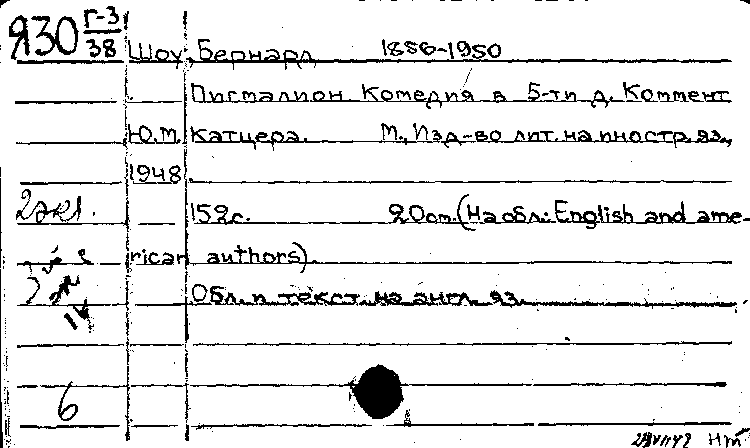 Я30 Г-3
38
Шоу, Бернард 1856-1950
Пигмалион. Комедия в 5-ти д. Коммент
Ю.М. Катцера. М., Изд-во лит. на иностр. яз.,
1948
2 экз. 152с. 20см. (На обл.: English and ame-
rican authors).
Обл. и текст. на англ. яз.
6